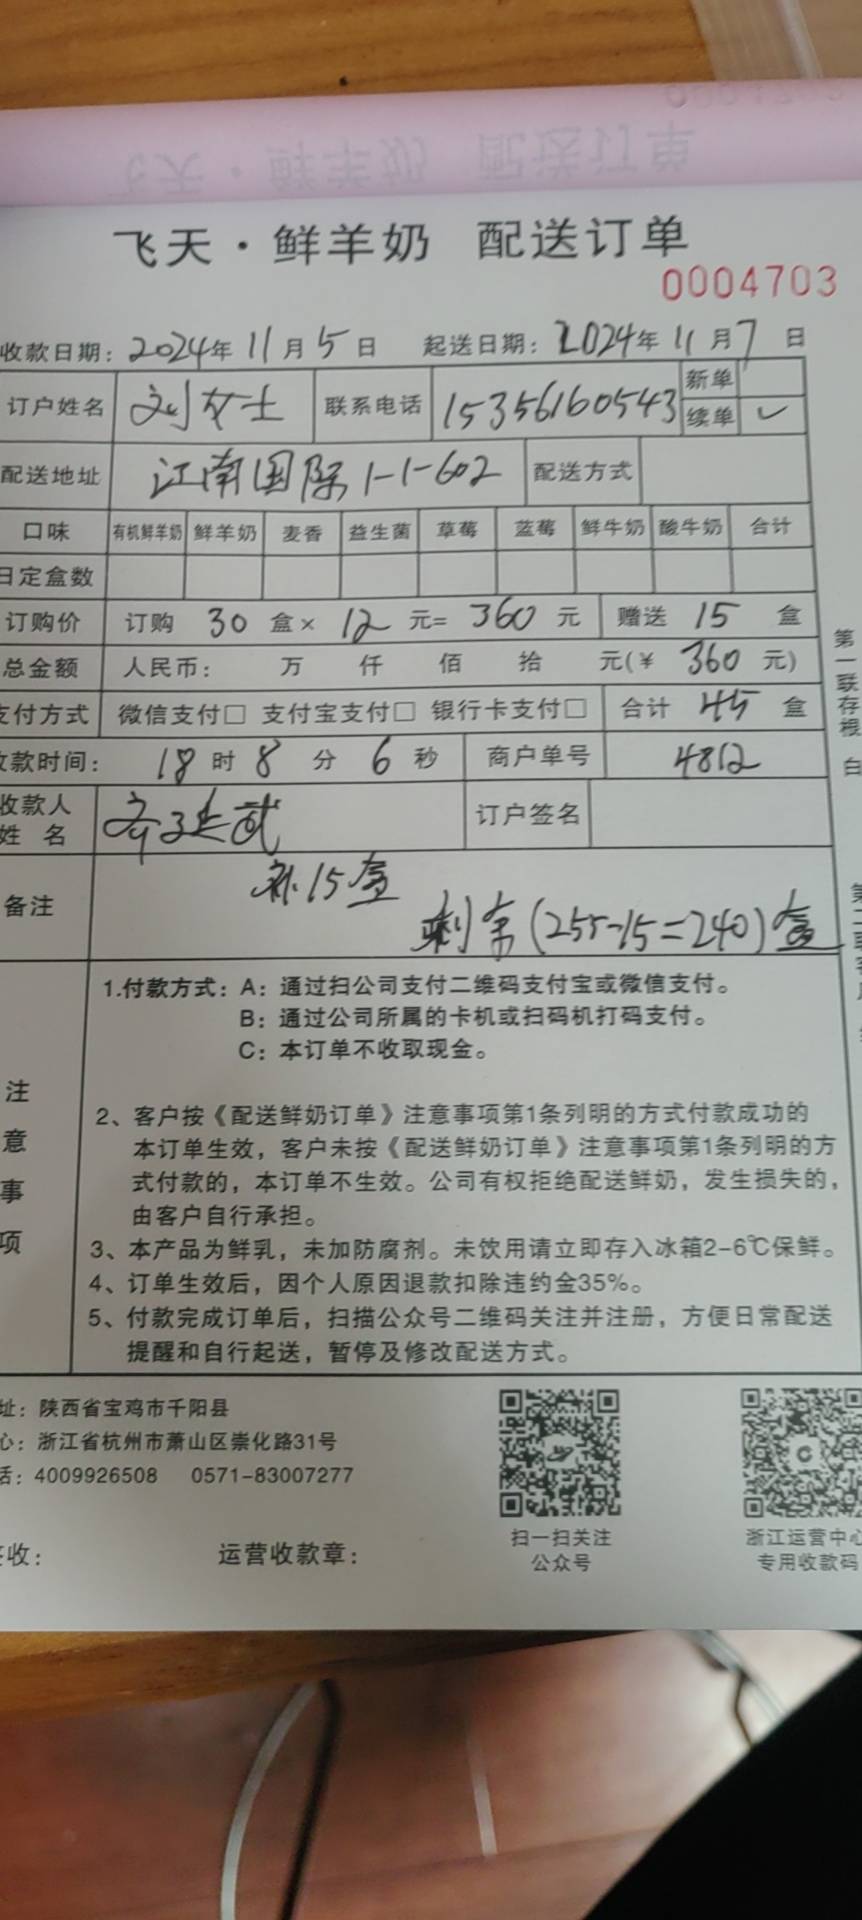 飞天·鲜羊奶 配送订单
0004703
收款日期：2024年11月5日 起送日期：2024年11月7日
订户姓名 刘女士 联系电话 15356160543 新单
续单 ✓
配送地址 江南国际1-1-602 配送方式
口味 有机鲜羊奶 鲜羊奶 麦香 益生菌 草莓 蓝莓 鲜牛奶 酸牛奶 合计
日定盒数
订购价 订购 30 盒× 12 元= 360 元 赠送 15 盒
总金额 人民币： 万 仟 佰 拾 元(￥ 360 元)
支付方式 微信支付□ 支付宝支付□ 银行卡支付□ 合计 45 盒
收款时间： 18 时 8 分 6 秒 商户单号 4812
收款人
姓 名 订户签名
备注 补15盒
剩余(255-15=240)盒
注意事项
1.付款方式：A：通过扫公司支付二维码支付宝或微信支付。
B：通过公司所属的卡机或扫码机打码支付。
C：本订单不收取现金。
2、客户按《配送鲜奶订单》注意事项第1条列明的方式付款成功的
本订单生效，客户未按《配送鲜奶订单》注意事项第1条列明的方
式付款的，本订单不生效。公司有权拒绝配送鲜奶，发生损失的，
由客户自行承担。
3、本产品为鲜乳，未加防腐剂。未饮用请立即存入冰箱2-6℃保鲜。
4、订单生效后，因个人原因退款扣除违约金35%。
5、付款完成订单后，扫描公众号二维码关注并注册，方便日常配送
提醒和自行起送，暂停及修改配送方式。
址：陕西省宝鸡市千阳县
心：浙江省杭州市萧山区崇化路31号
话：4009926508 0571-83007277
扫一扫关注
公众号
浙江运营中心
专用收款码
签收： 运营收款章：
第一联存根 白